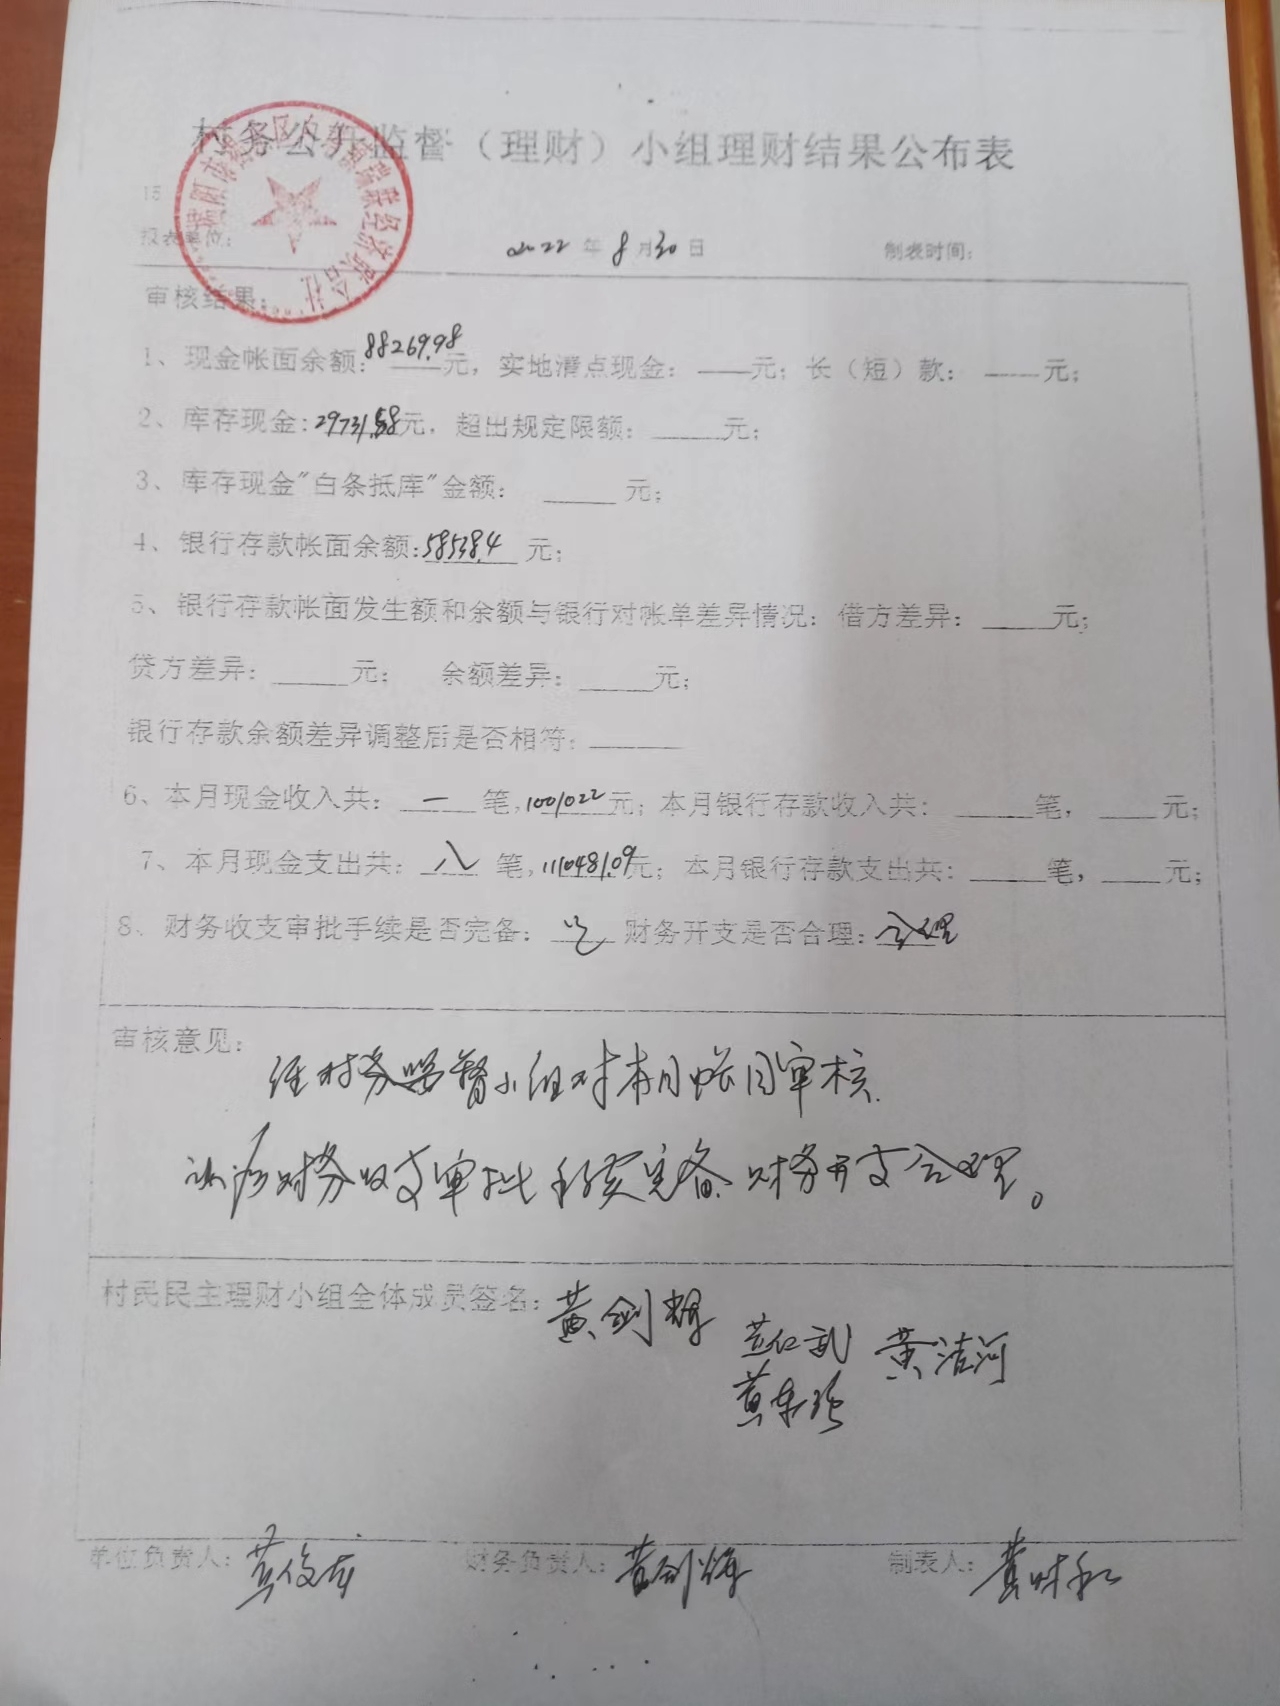 村务公开监督（理财）小组理财结果公布表
15
报表单位： 2022年8月30日 制表时间：
审核结果：
1、现金帐面余额：88269.98元，实地清点现金：——元；长（短）款：——元；
2、库存现金：29731.58元，超出规定限额：____元；
3、库存现金"白条抵库"金额： ____元；
4、银行存款帐面余额：58538.4 元；
5、银行存款帐面发生额和余额与银行对帐单差异情况：借方差异：____元；
贷方差异：____元； 余额差异：____元；
银行存款余额差异调整后是否相符：____
6、本月现金收入共：一笔，1001022元；本月银行存款收入共：____笔，____元；
7、本月现金支出共：八笔，111048.09元；本月银行存款支出共：____笔，____元；
8、财务收支审批手续是否完备： 财务开支是否合理：合理
审核意见：
经村务监督小组对本月帐目审核.
认为财务收支审批手续完备 财务开支合理。
村民民主理财小组全体成员签名：黄剑辉
黄仁武 黄洁河
单位负责人： 财务负责人：黄剑辉 制表人：